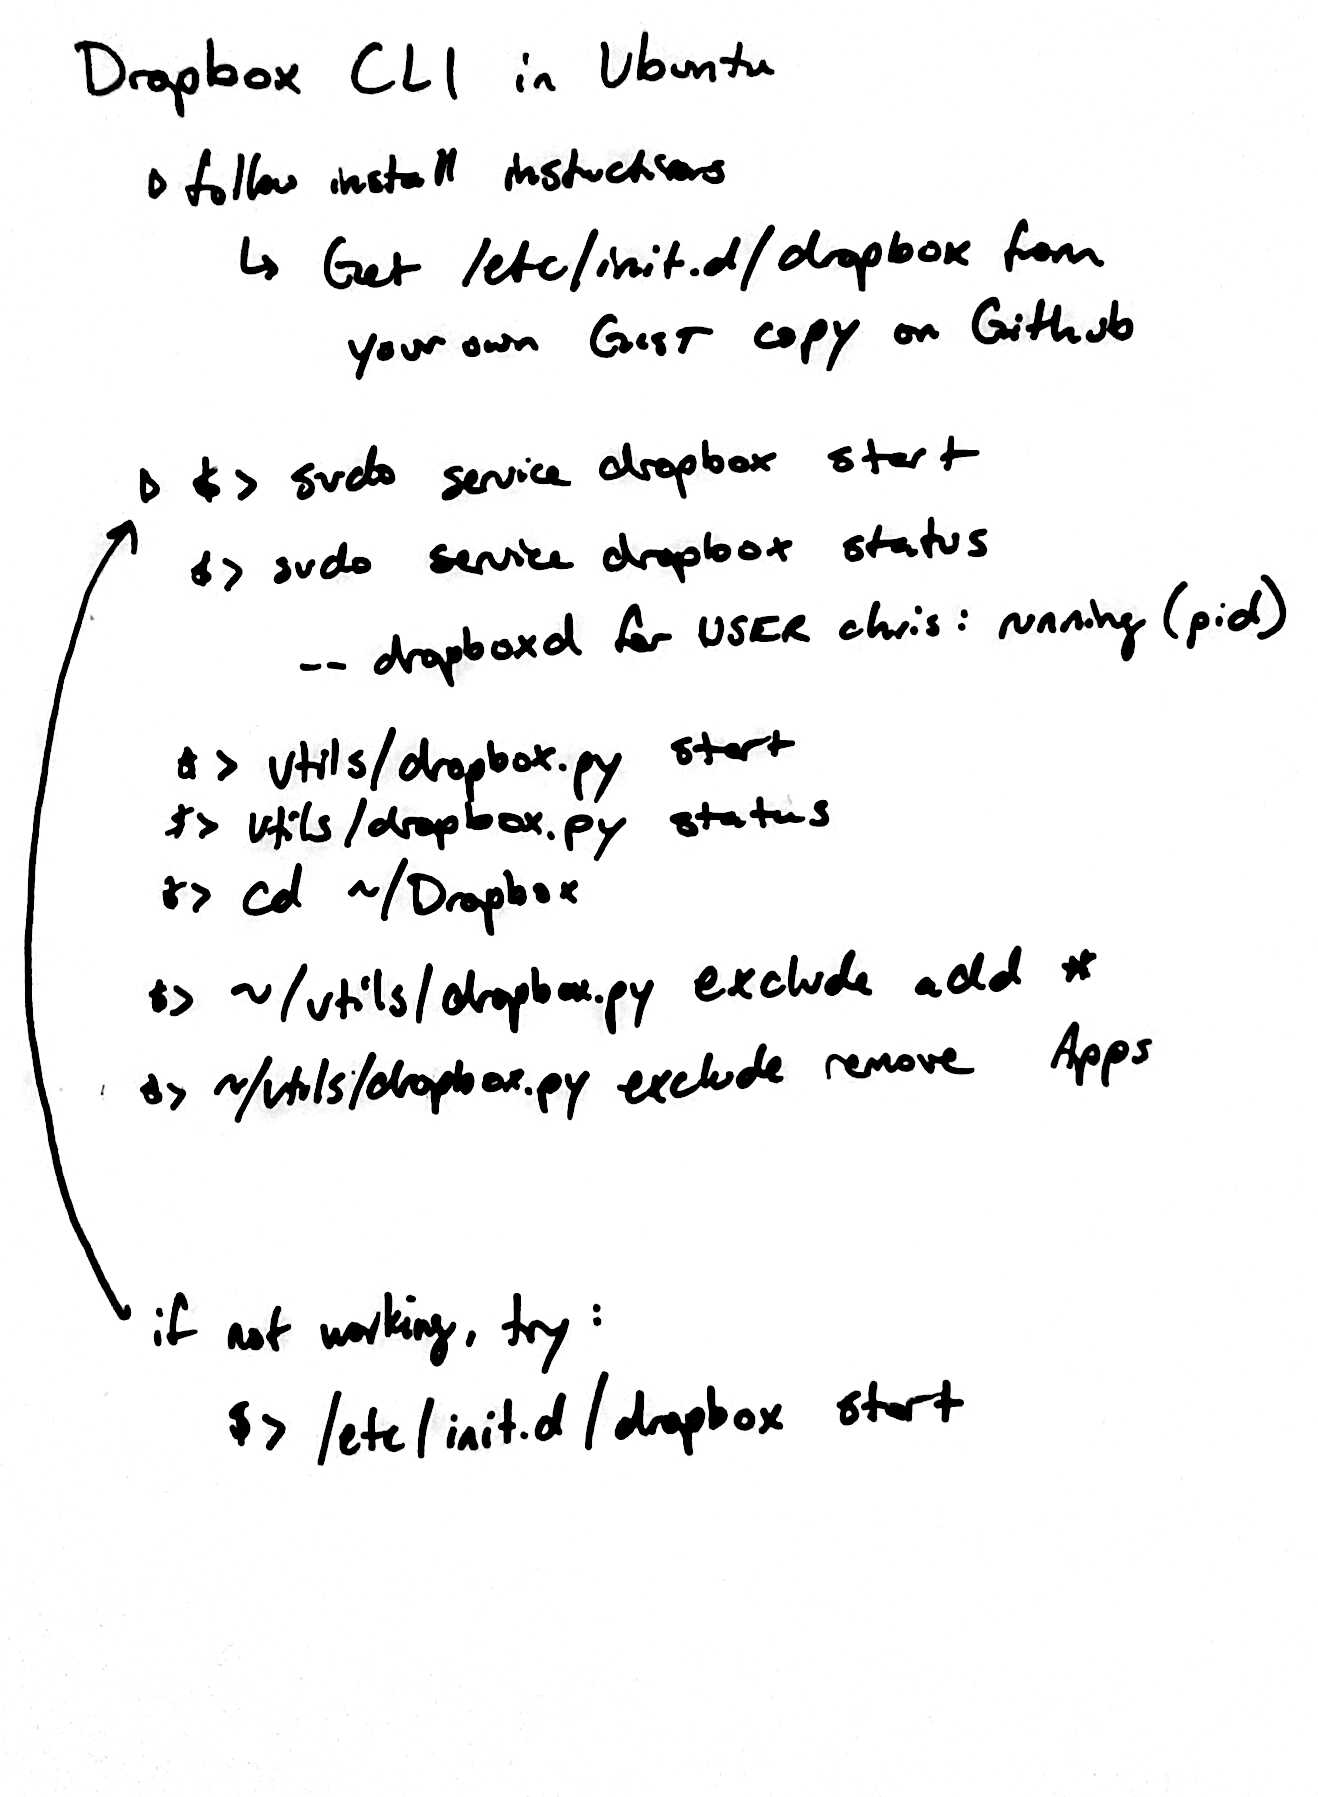 Dropbox CLI in Ubuntu
▷ follow install instuctions
↳ Get /etc/init.d/dropbox from
your own GIST copy on Github
▷ $> sudo service dropbox start
$> sudo service dropbox status
-- dropboxd for USER chris: running (pid)
$> utils/dropbox.py start
$> utils/dropbox.py status
$> cd ~/Dropbox
$> ~/utils/dropbox.py exclude add *
$> ~/utils/dropbox.py exclude remove Apps
if not working, try:
$> /etc/init.d/dropbox start